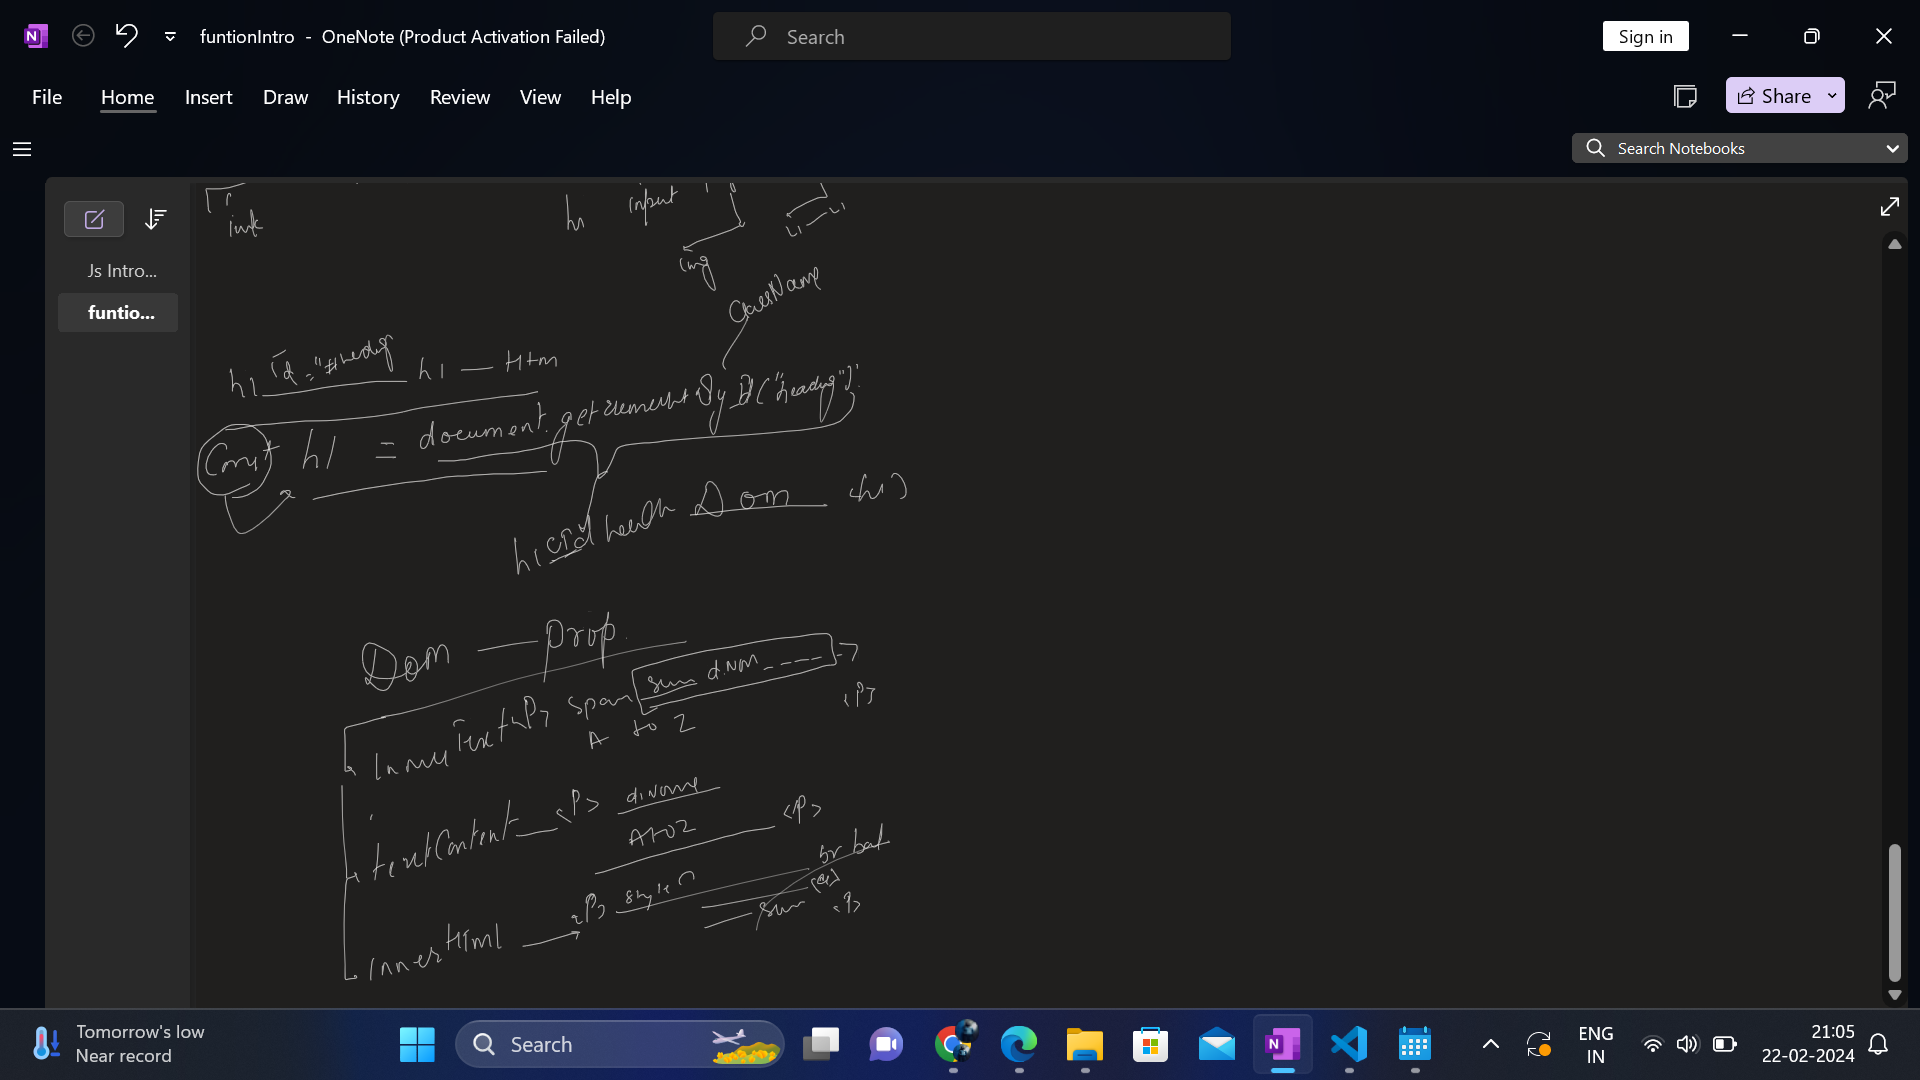 funtionIntro - OneNote (Product Activation Failed)
Search
Sign in
File Home Insert Draw History Review View Help
Share
Search Notebooks
Js Intro...
funtio...
input
h
li li
img
ClassName
h1 Id="# h1 — Htm
Const h1 = document.getElementById("heading")
h1 id Dom <h1>
Dom — prop.
InnerText <P> span d.Nm ---->
A to Z <P>
textContent — <P> d.Name <P>
A to Z
InnerHtml → <P> <P>
Tomorrow's low
Near record
Search
ENG
IN
21:05
22-02-2024